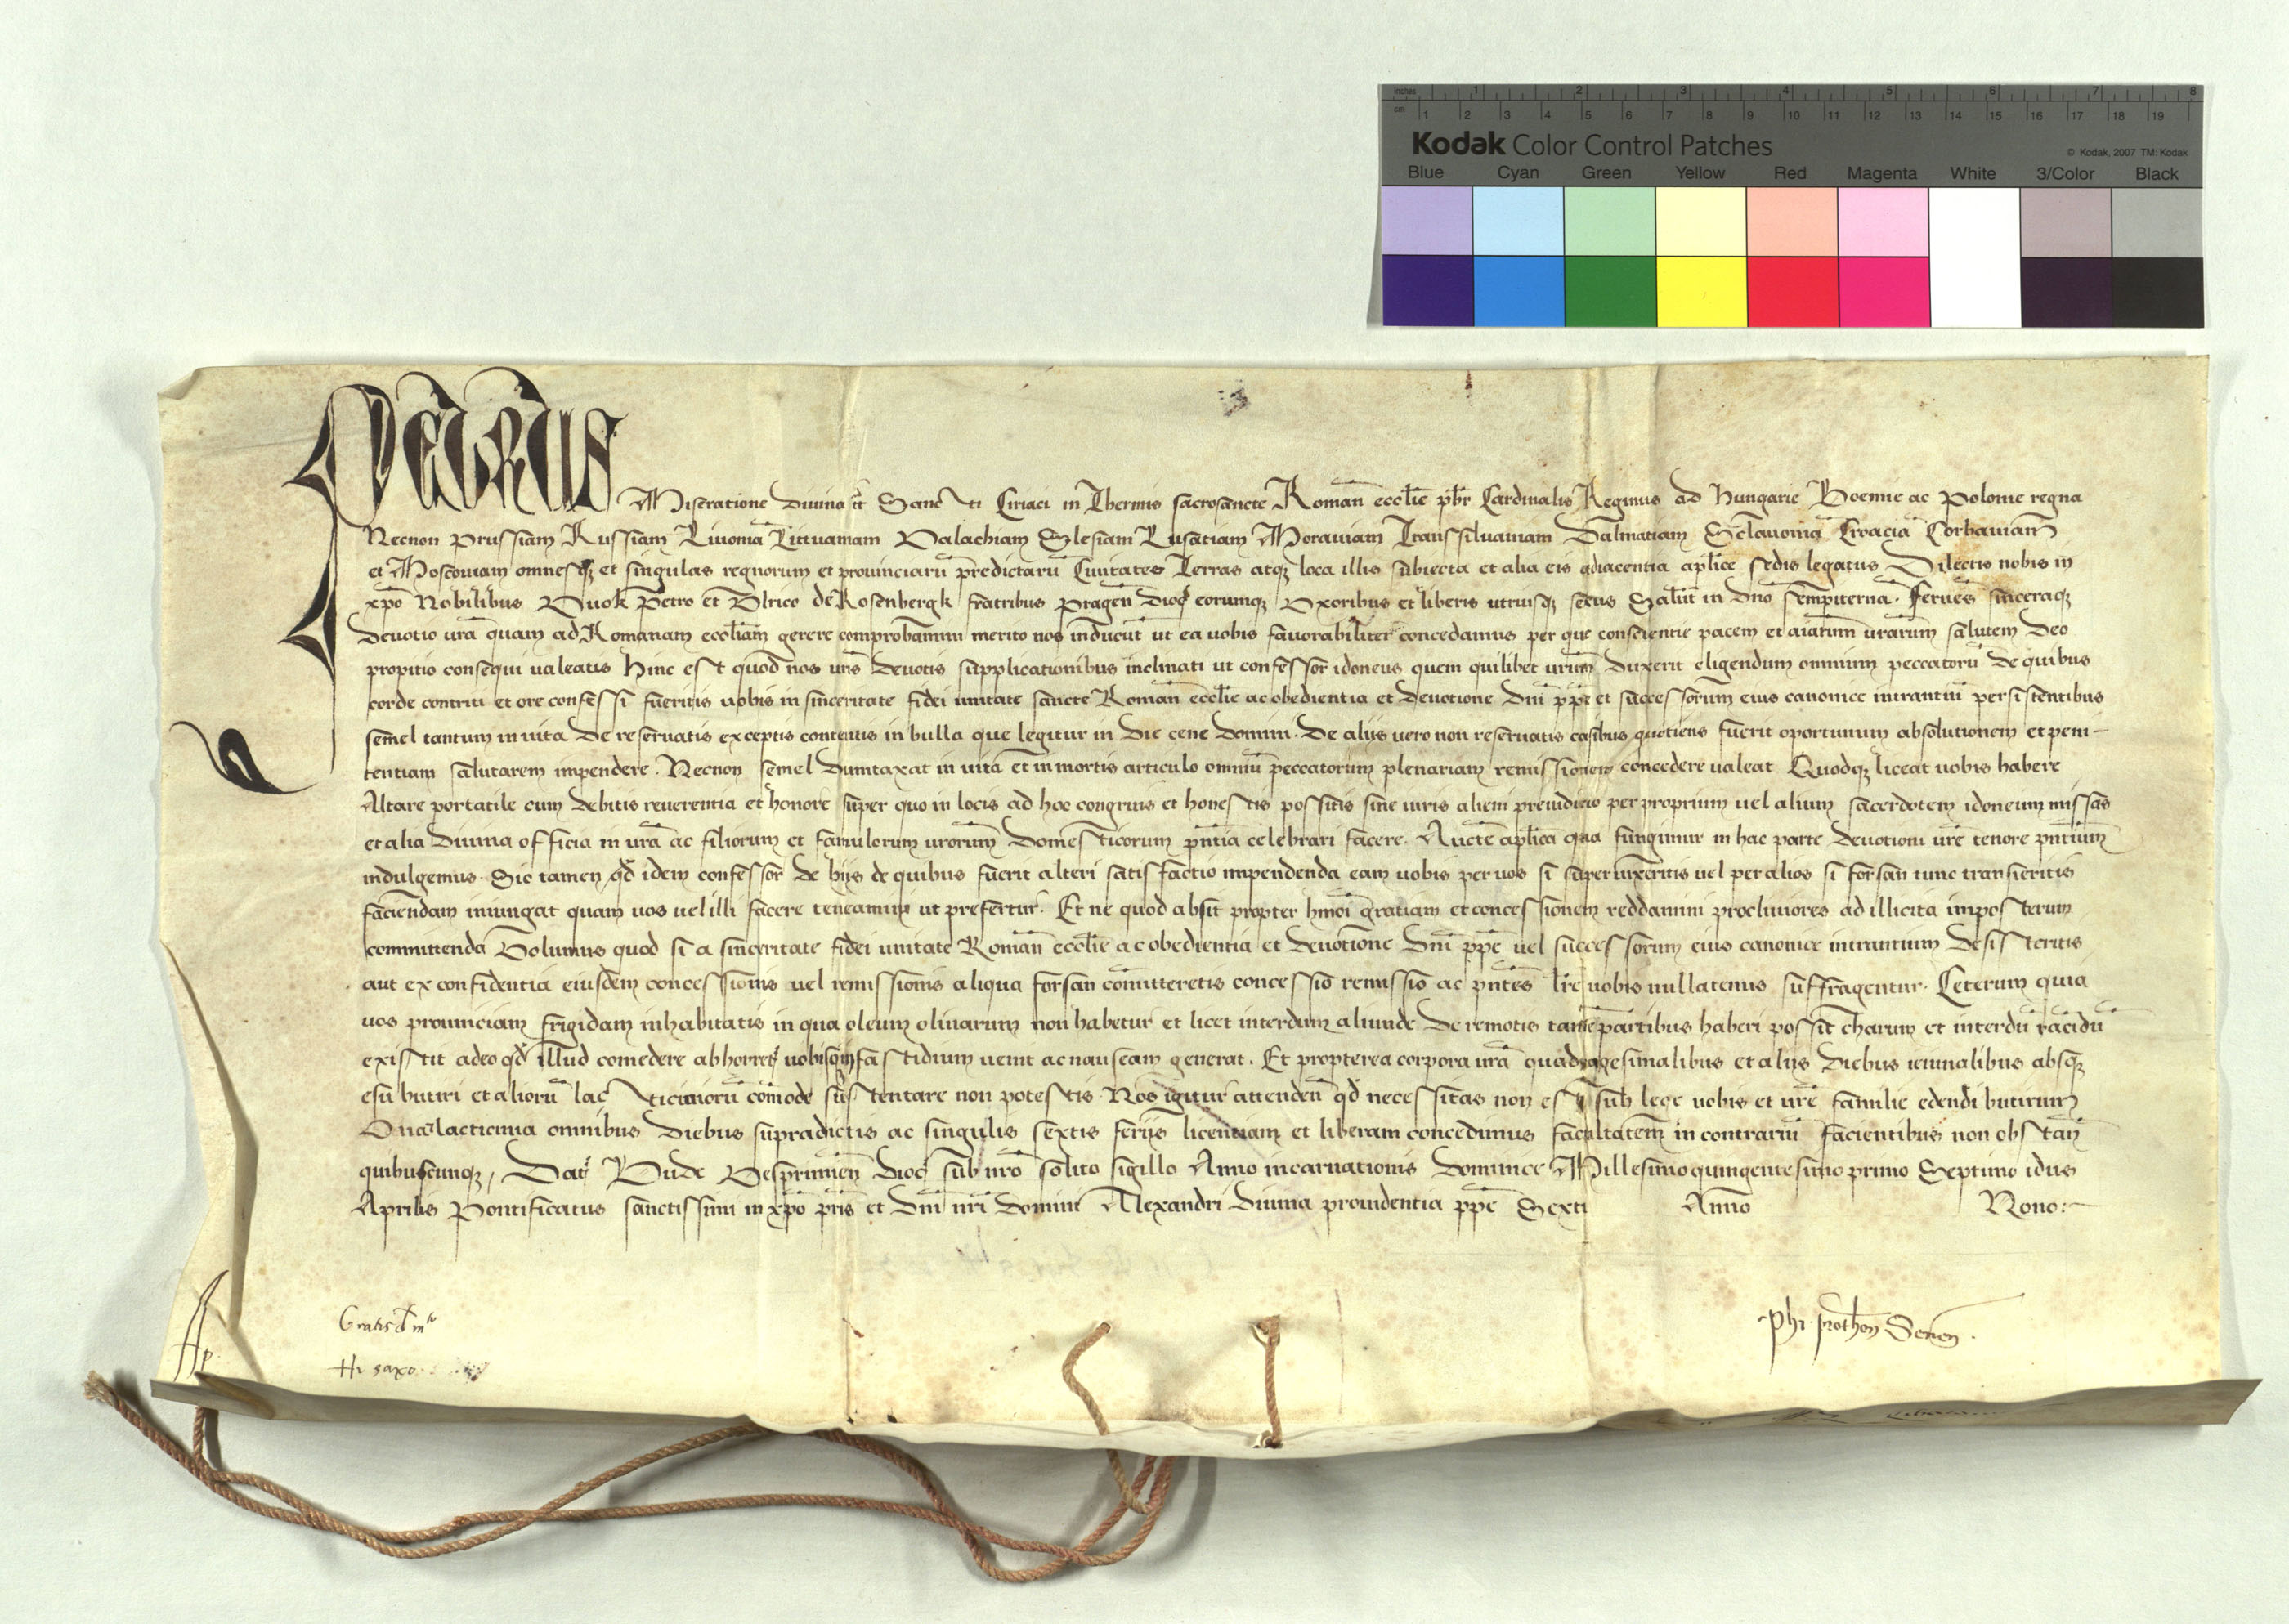 inches 1 2 3 4 5 6 7 8
cm 1 2 3 4 5 6 7 8 9 10 11 12 13 14 15 16 17 18 19
Kodak Color Control Patches
© Kodak, 2007 TM: Kodak
Blue Cyan Green Yellow Red Magenta White 3/Color Black
Petrus Miseratione diuina tt Sancti Ciriaci in Thermis sacrosancte Roman̄ eccl̄ie pb̄r Cardinalis Reginus ad Hungarie Boemie ac Polonie regna
Necnon Prussiam Russiam Liuoniā Lituuaniam Valachiam Slesiam Lusatiam Morauiam Transsiluaniam Dalmatiam Sclauoniā Croaciā Corbauiam
et Moscouiam omnesqȝ et singulas regnorum et prouinciarū predictarū Ciuitates Terras atqȝ loca illis subiecta et alia eis adiacentia apl̄ice sedis legatus Dilectis nobis in
xp̄o Nobilibus Vuok Petro et Vlrico de Rosenbergk fratribus Pragen̄ dioc̄ eorumqȝ Vxoribus et liberis utriusqȝ sexus Salūt in dn̄o sempiternā. Feruēs sinceraqȝ
deuotio ur̄a quam ad Romanam eccl̄iam gerere comprobamini merito nos inducūt ut ea uobis fauorabiliter concedamus per que conscientie pacem et aīarum ur̄arum salutem deo
propitio consequi ualeatis Hinc est quod nos ur̄is deuotis supplicationibus inclinati ut confessor idoneus quem quilibet ur̄um duxerit eligendum omnium peccatorū de quibus
corde contriti et ore confessi fueritis uobis in sinceritate fidei unitate sancte Roman̄ eccl̄ie ac obedientia et deuotione dn̄i pp̄e et successorum eius canonice intrantiū persistentibus
semel tantum in uita de reseruatis exceptis contentis in bulla que legitur in die cene domini. De alijs uero non reseruatis casibus quotiens fuerit oportunum absolutionem et peni-
tentiam salutarem impendere. Necnon semel dumtaxat in uita et in mortis articulo omniū peccatorum plenariam remissionem concedere ualeat Quodqȝ liceat uobis habere
Altare portatile cum debitis reuerentia et honore super quo in locis ad hoc congruis et honestis possitis sine iuris alieni preiuditio per proprium uel alium sacerdotem idoneum missas
et alia diuina officia in ur̄a ac filiorum et famulorum ur̄orum domesticorum pn̄tia celebrari facere. Auctē apl̄ica qua fungimur in hac parte deuotioni ur̄e tenore pn̄tium
indulgemus. Sic tamen qd̄ idem confessor de hijs de quibus fuerit alteri satisfactio impendenda eam uobis per uos si superuixeritis uel per alios si forsan tunc transieritis
faciendam iniungat quam uos uel illi facere teneamini ut prefertur. Et ne quod absit propter hm̄oi gratiam et concessionem reddamini procliuiores ad illicita imposterum
committenda Volumus quod si a sinceritate fidei unitate Roman̄ eccl̄ie ac obedientia et deuotione dn̄i pp̄e uel successorum eius canonice intrantium desisteritis
aut ex confidentia eiusdem concessionis uel remissionis aliqua forsan cōmitteretis concessio remissio ac pn̄tes lr̄e uobis nullatenus suffragentur. Ceterum quia
uos prouinciam frigidam inhabitatis in qua oleum oliuarum non habetur et licet interdum aliunde de remotis tamē partibus haberi possit charum et interdū rācidū
existit adeo qd̄ illud comedere abhorretis uobisqȝ in fastidium uenit ac nauseam generat. Et propterea corpora ur̄a quadragesimalibus et alijs diebus ieiunalibus absqȝ
esu butiri et aliorū lacticiniorū cōmode sustentare non potestis. Nos igitur attenden̄ qd̄ necessitas non est sub lege uobis et ur̄e familie edendi butirum
Oua lacticinia omnibus diebus supradictis ac singulis sextis ferijs licentiam et liberam concedimus facultatem in contrariū facientibus non obstan̄
quibuscunqȝ, Dat̄ Bude Vesprimien̄ dioc̄ sub nr̄o solito sigillo Anno incarnationis dominice Millesimoquingentesimo primo Septimo idus
Aprilis Pontificatus sanctissimi in xp̄o pr̄is et dn̄i nr̄i domini Alexandri diuina prouidentia pp̄e Sexti Anno Nono:-
Gratis d m
Hi saxo
Phi. Prothon̄ Senen̄.